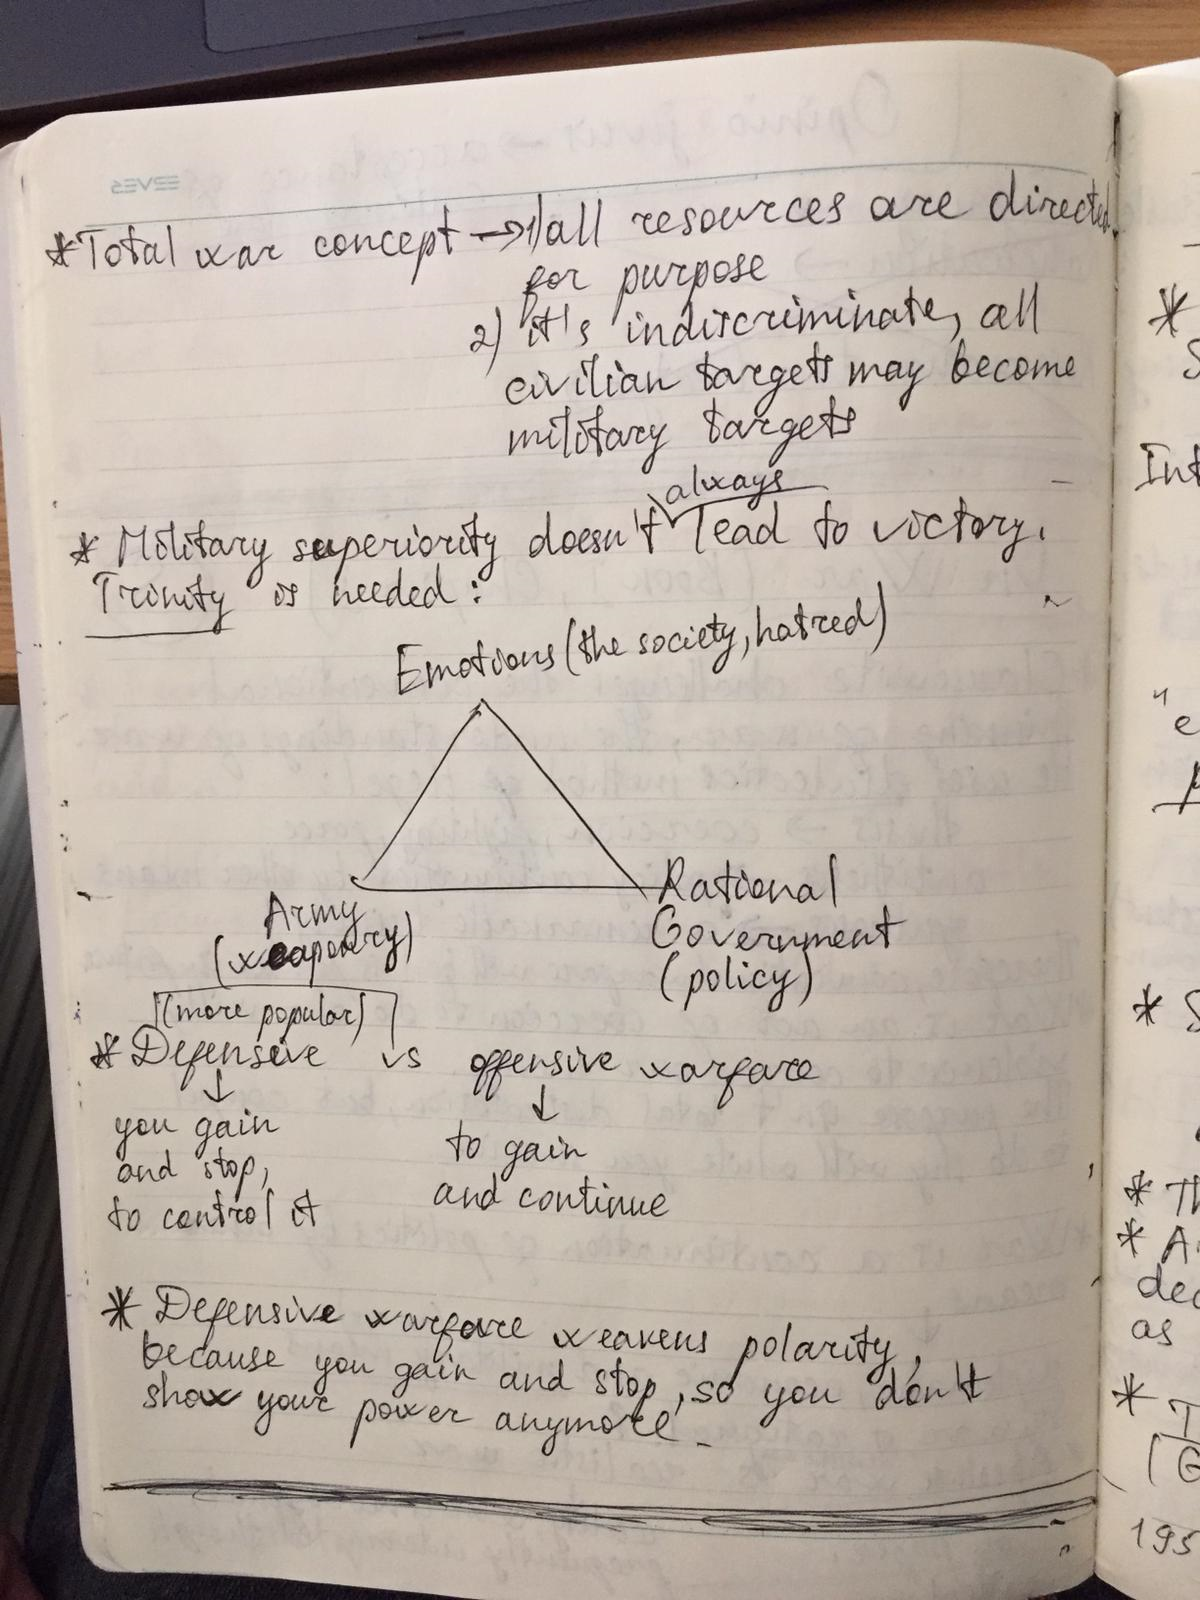 * Total war concept → 1) all resources are directed
for purpose
2) it's indiscriminate, all
civilian targets may become
military targets
always
* Military superiority doesn't lead to victory.
Trinity is needed:
Emotions (the society, hatred)
Army
(weaponry)
Rational
Government
(policy)
(more popular)
* Defensive vs offensive warfare
↓ ↓
you gain
and stop,
to control it
to gain
and continue
* Defensive warfare weakens polarity,
because you gain and stop, so you don't
show your power anymore.
*
Int
"e
*
* Th
* A
dec
as
*
195